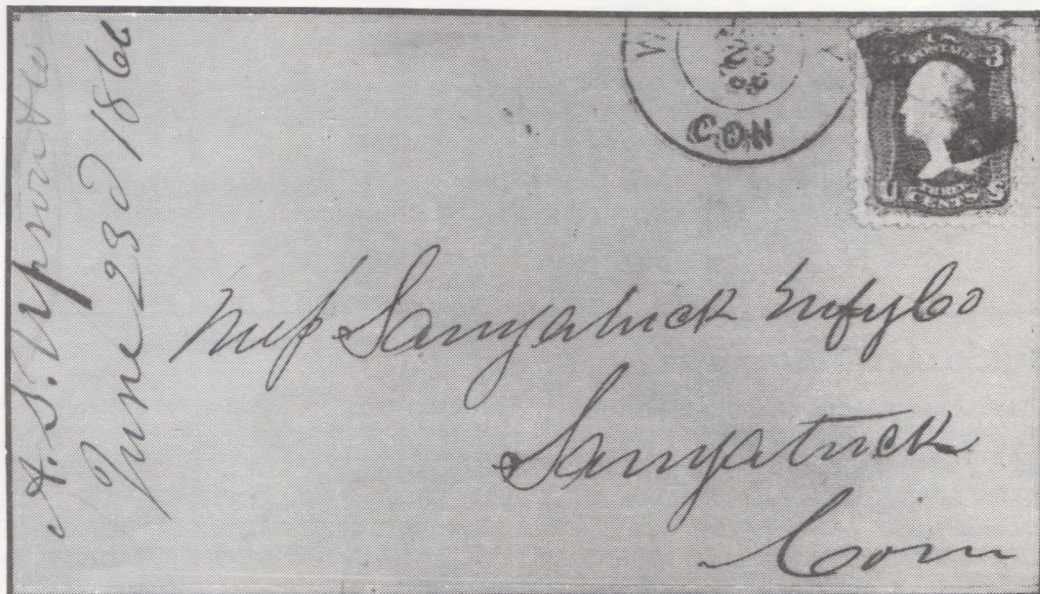 A. S. Upson &co
June 23d 1866
W
CON
U.S.
POSTAGE
3
U S
THREE
CENTS
Mess Saugatuck Mnfg Co
Saugatuck
Conn